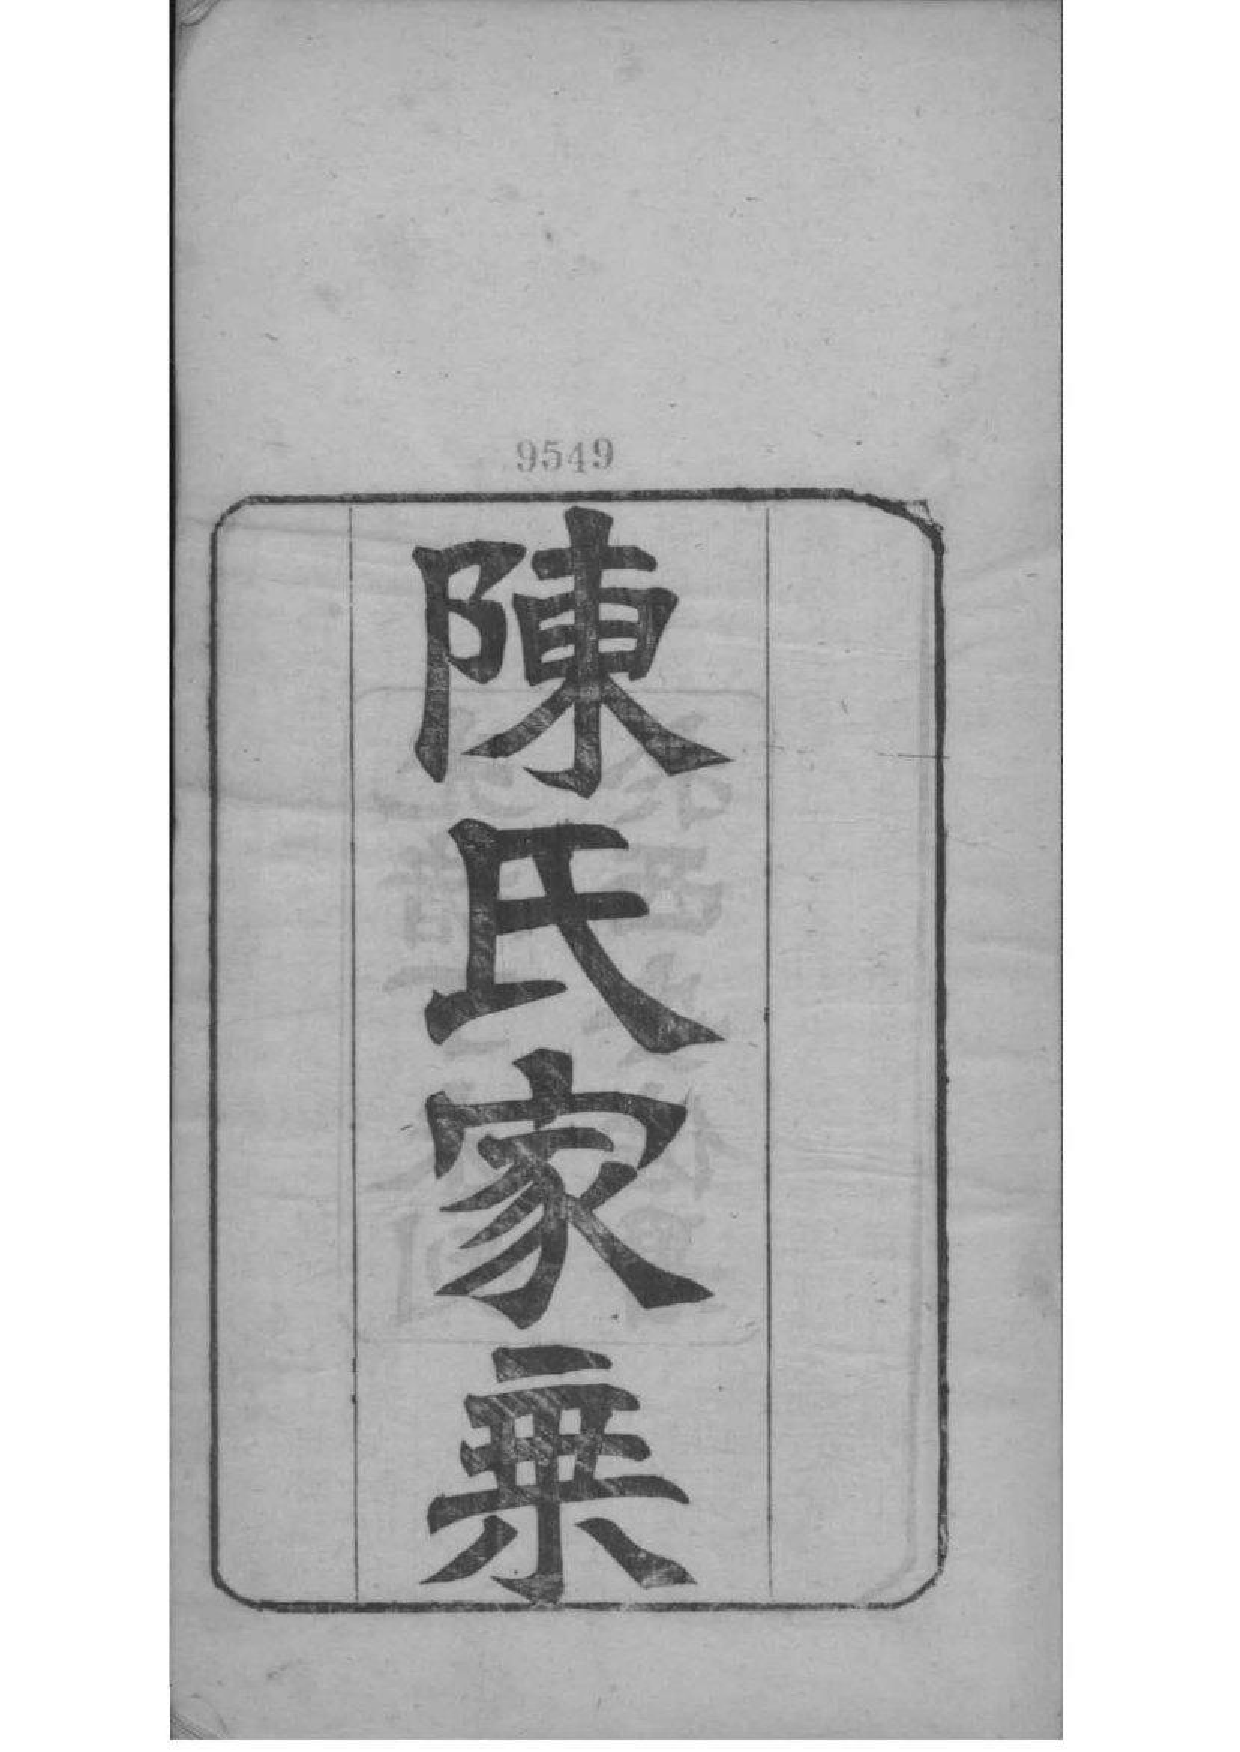 9549
陳氏家乗